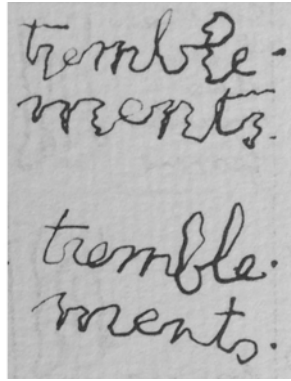 tremble-
ments.
tremble-
ments.